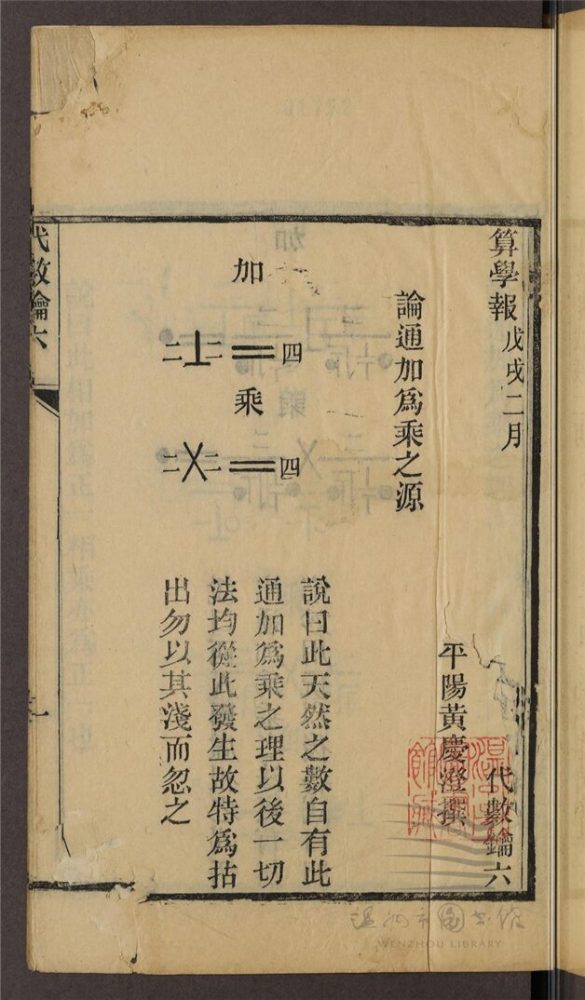 算學報 戊戌二月 代數鑰六
平陽黃慶澄撰
論通加爲乘之源
加
二⊥二=四
乘
二×二=四
說曰此天然之數自有此
通加爲乘之理以後一切
法均從此發生故特爲拈
出勿以其淺而忽之
代數鑰六
一
温州市圖書館
WENZHOU LIBRARY